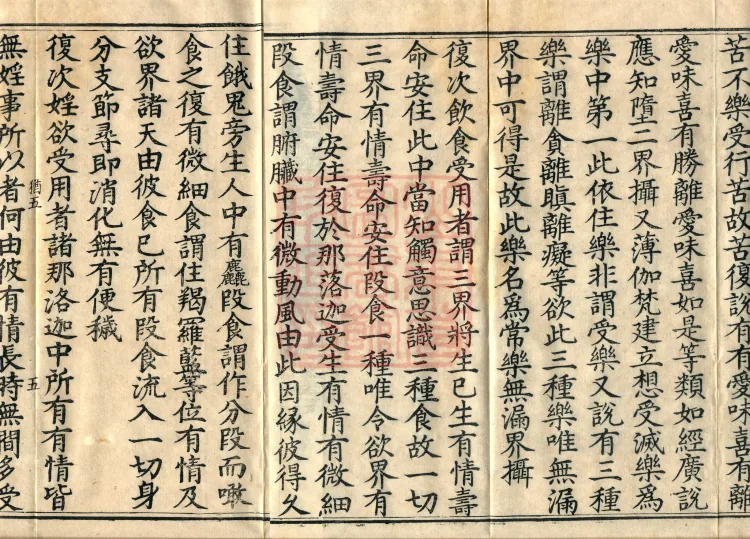 苦不樂受行苦故苦復說有有愛味喜有離
愛味喜有勝離愛味喜如是等類如經廣說
應知墮三界攝又薄伽梵建立想受滅樂爲
樂中第一此依住樂非謂受樂又說有三種
樂謂離貪離瞋離癡等欲此三種樂唯無漏
界中可得是故此樂名爲常樂無漏界攝
復次飲食受用者謂三界將生已生有情壽
命安住此中當知觸意思識三種食故一切
三界有情壽命安住段食一種唯令欲界有
情壽命安住復於那落迦受生有情有微細
段食謂腑臟中有微動風由此因緣彼得久
住餓鬼旁生人中有麤段食謂作分段而噉
食之復有微細食謂住羯羅藍等位有情及
欲界諸天由彼食已所有段食流入一切身
分支節尋即消化無有便穢
復次婬欲受用者諸那洛迦中所有有情皆
猶五 五
無婬事所以者何由彼有情長時無間多受